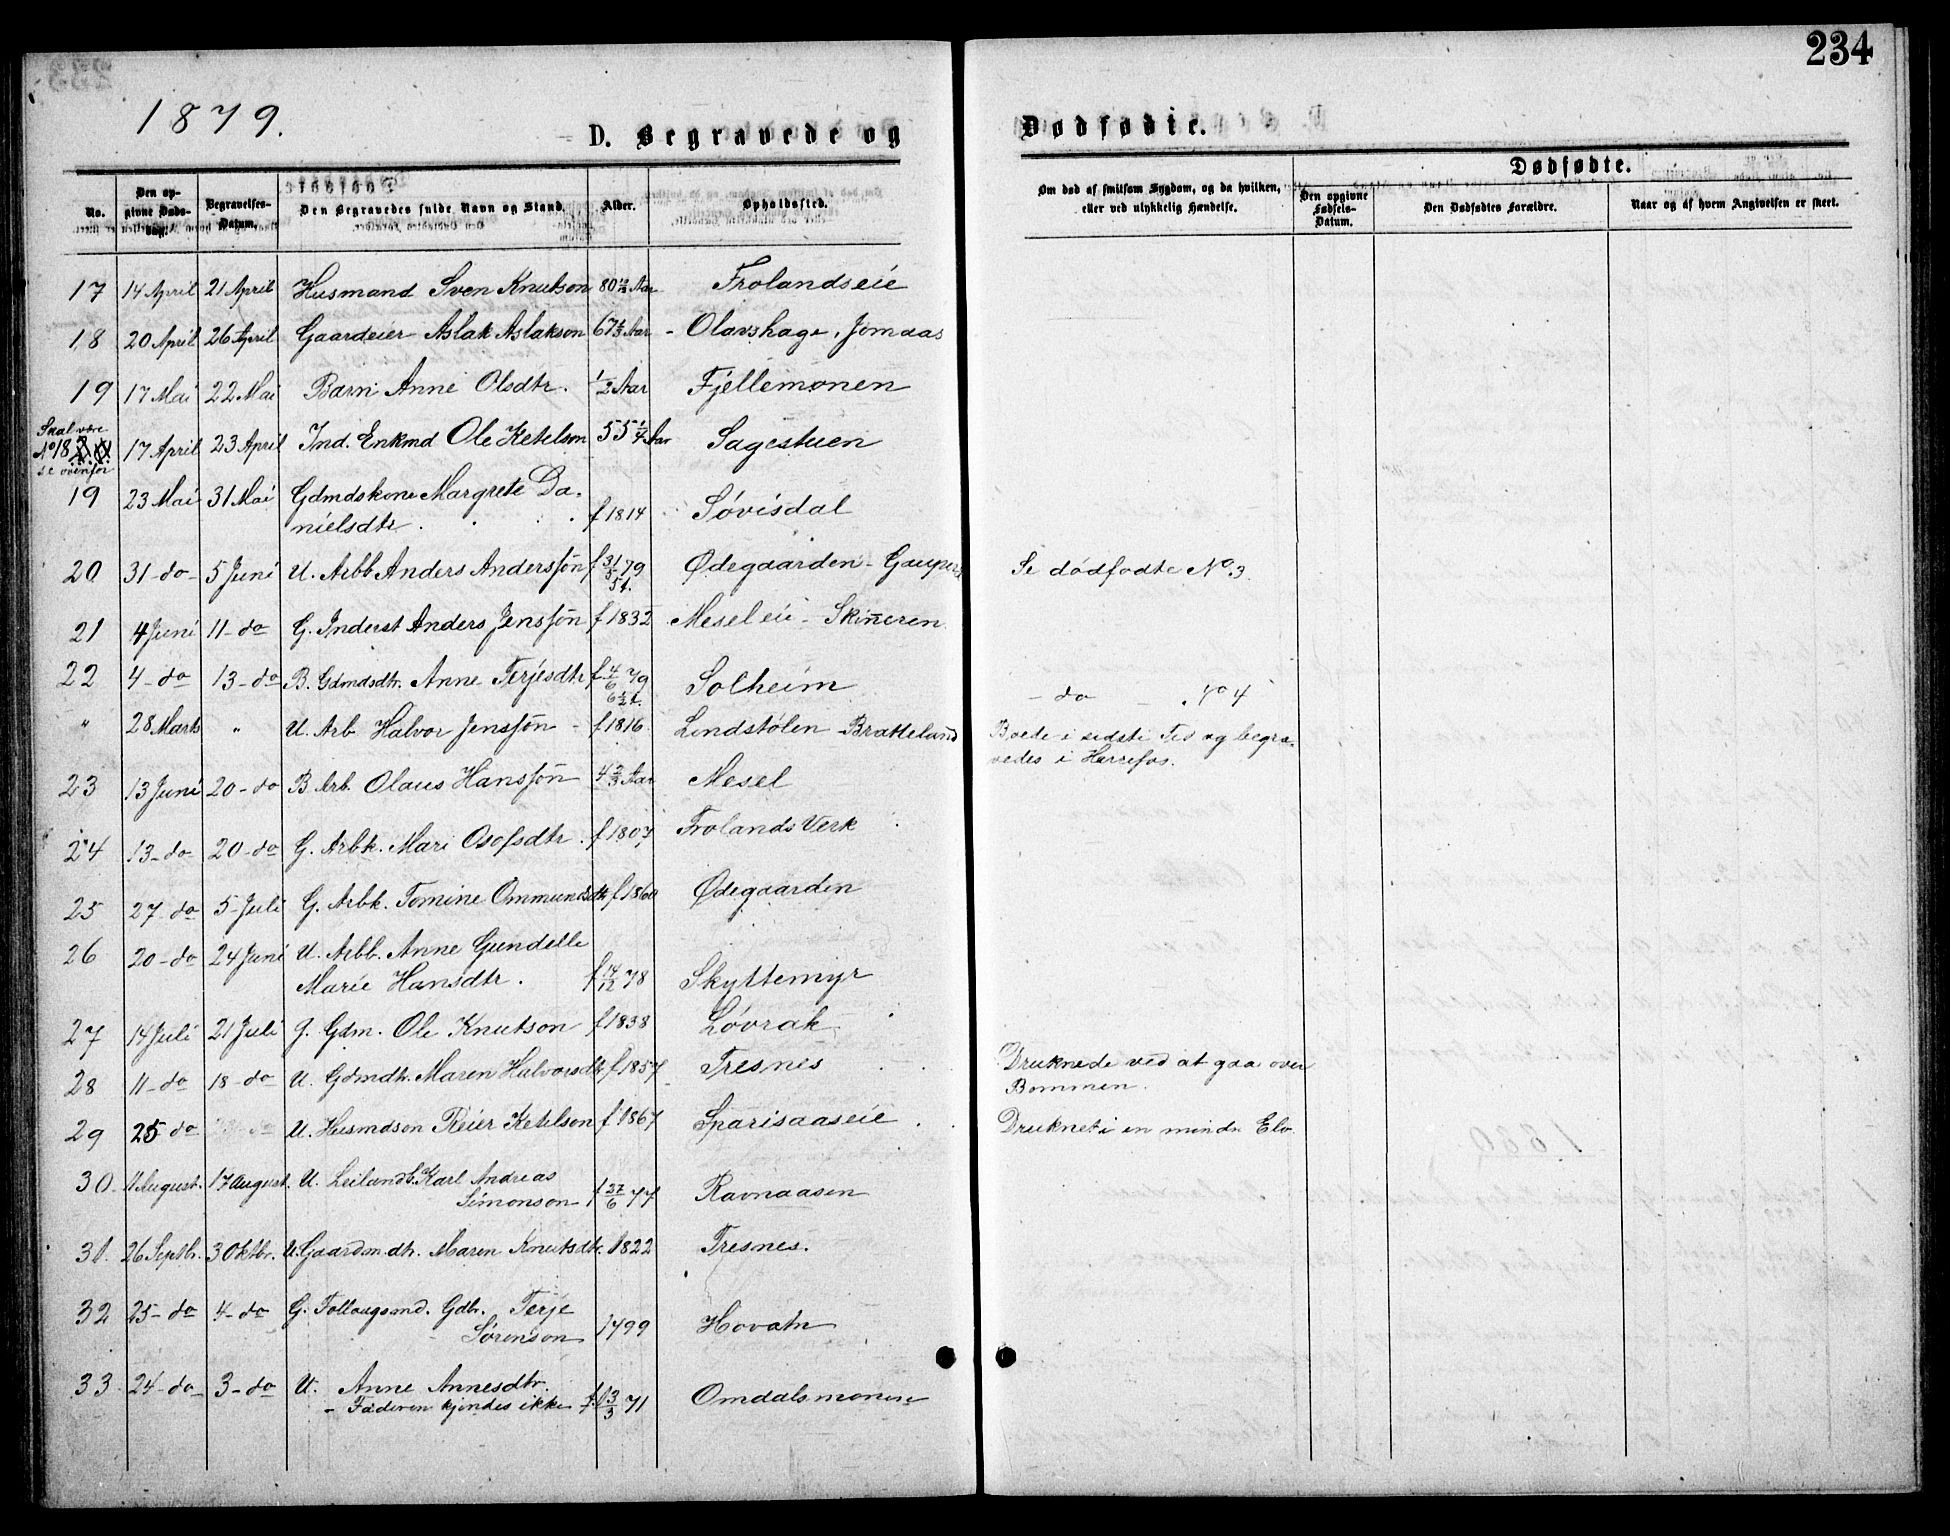 234
1879.
D. Begravede og Dødfødte.
Dødfødte.
No.
Den opgivne Døds-Dag.
Begravelses-Datum.
Den Begravedes fulde Navn og Stand.
Alder.
Opholdssted.
Om død af smitsom Sygdom, og da hvilken, eller ved ulykkelig Hændelse.
Den opgivne Fødsels-Datum.
Den Dødfødtes Forældre.
Naar og af hvem Angivelsen er skeet.
17 14 April 21 April Husmand Sven Knutson 80 Aar Frolandseie
18 20 April 26 April Gaardeier Aslak Aslakson 67 1/3 Aar - Olavshage, Jomaas
19 17 Mai 22 Mai Barn Anne Olsdtr. 1/2 Aar Fjellemonen
Skal være
No 18 17 April 23 April Ind. Enkmd Ole Ketelson 55 1/4 Aar Sagestuen
se ovenfor
19 23 Mai 31 Mai Gdmdskone Margrete Da-
nielsdtr. f 1814 Søvisdal
20 31-do- 5 Juni U. Arbb Anders Andersson f 31/5 79 Ødegaarden - Se dødfødte No 3.
5t.
21 4 Juni 11-do G. Inderst Anders Jensson f 1832 Mesel eie - Skineren
22 4-do 13-do B. Gdmdsdtr. Anne Terjesdtr f 4/6 79 Solheim - do - No 4
6 1/2 t.
" 28 Marts " U. Arb Halvor Jensson - f 1816 Lindstølen Bratteland Boede i sidste Tid og begra-
vedes i Herrefos.
23 13 Juni 20-do B Arb. Olaus Hansson 4 2/3 Aar Mesel
24 13-do 20-do G. Arbk. Mari Osofsdtr. f 1807 Frolands Verk
25 27-do 5-Juli G. Arbk. Tomine Ommundsdtr f 1860 Ødegaarden
26 20-do 24 Juni U. Arbb. Anne Gundelle
Marie Hansdtr. f 14/12 78 Skyttemyr
27 14 Juli 21 Juli G. Gdm. Ole Knutson f 1838 Løvrak
28 11-do 18-do U. Gdmdtr. Maren Halvorsdtr f 1857 Tresnes Druknede ved at gaa over
Bommen.
29 25 do U. Husmdson Reier Ketelson f 1867 Sparisaaseie Druknet i en mindre Elv.
30. 11 August. 17 August. U. Leilandb. Karl Andreas
Simonson f 27/6 77 Ravnaasen
31. 26 Septbr. 3 Oktbr. U. Gaardm.dtr. Maren Knutsdtr. 1822 Tresnes.
32 25-do 4-do G. Follaugsmd. Gdbr. Terje
Sørenson 1799 Hovatn
33 24-do 3-do U. Anne Annesdtr.
- Faderen kjendes ikke f. 13/3 71 Omdalsmonen